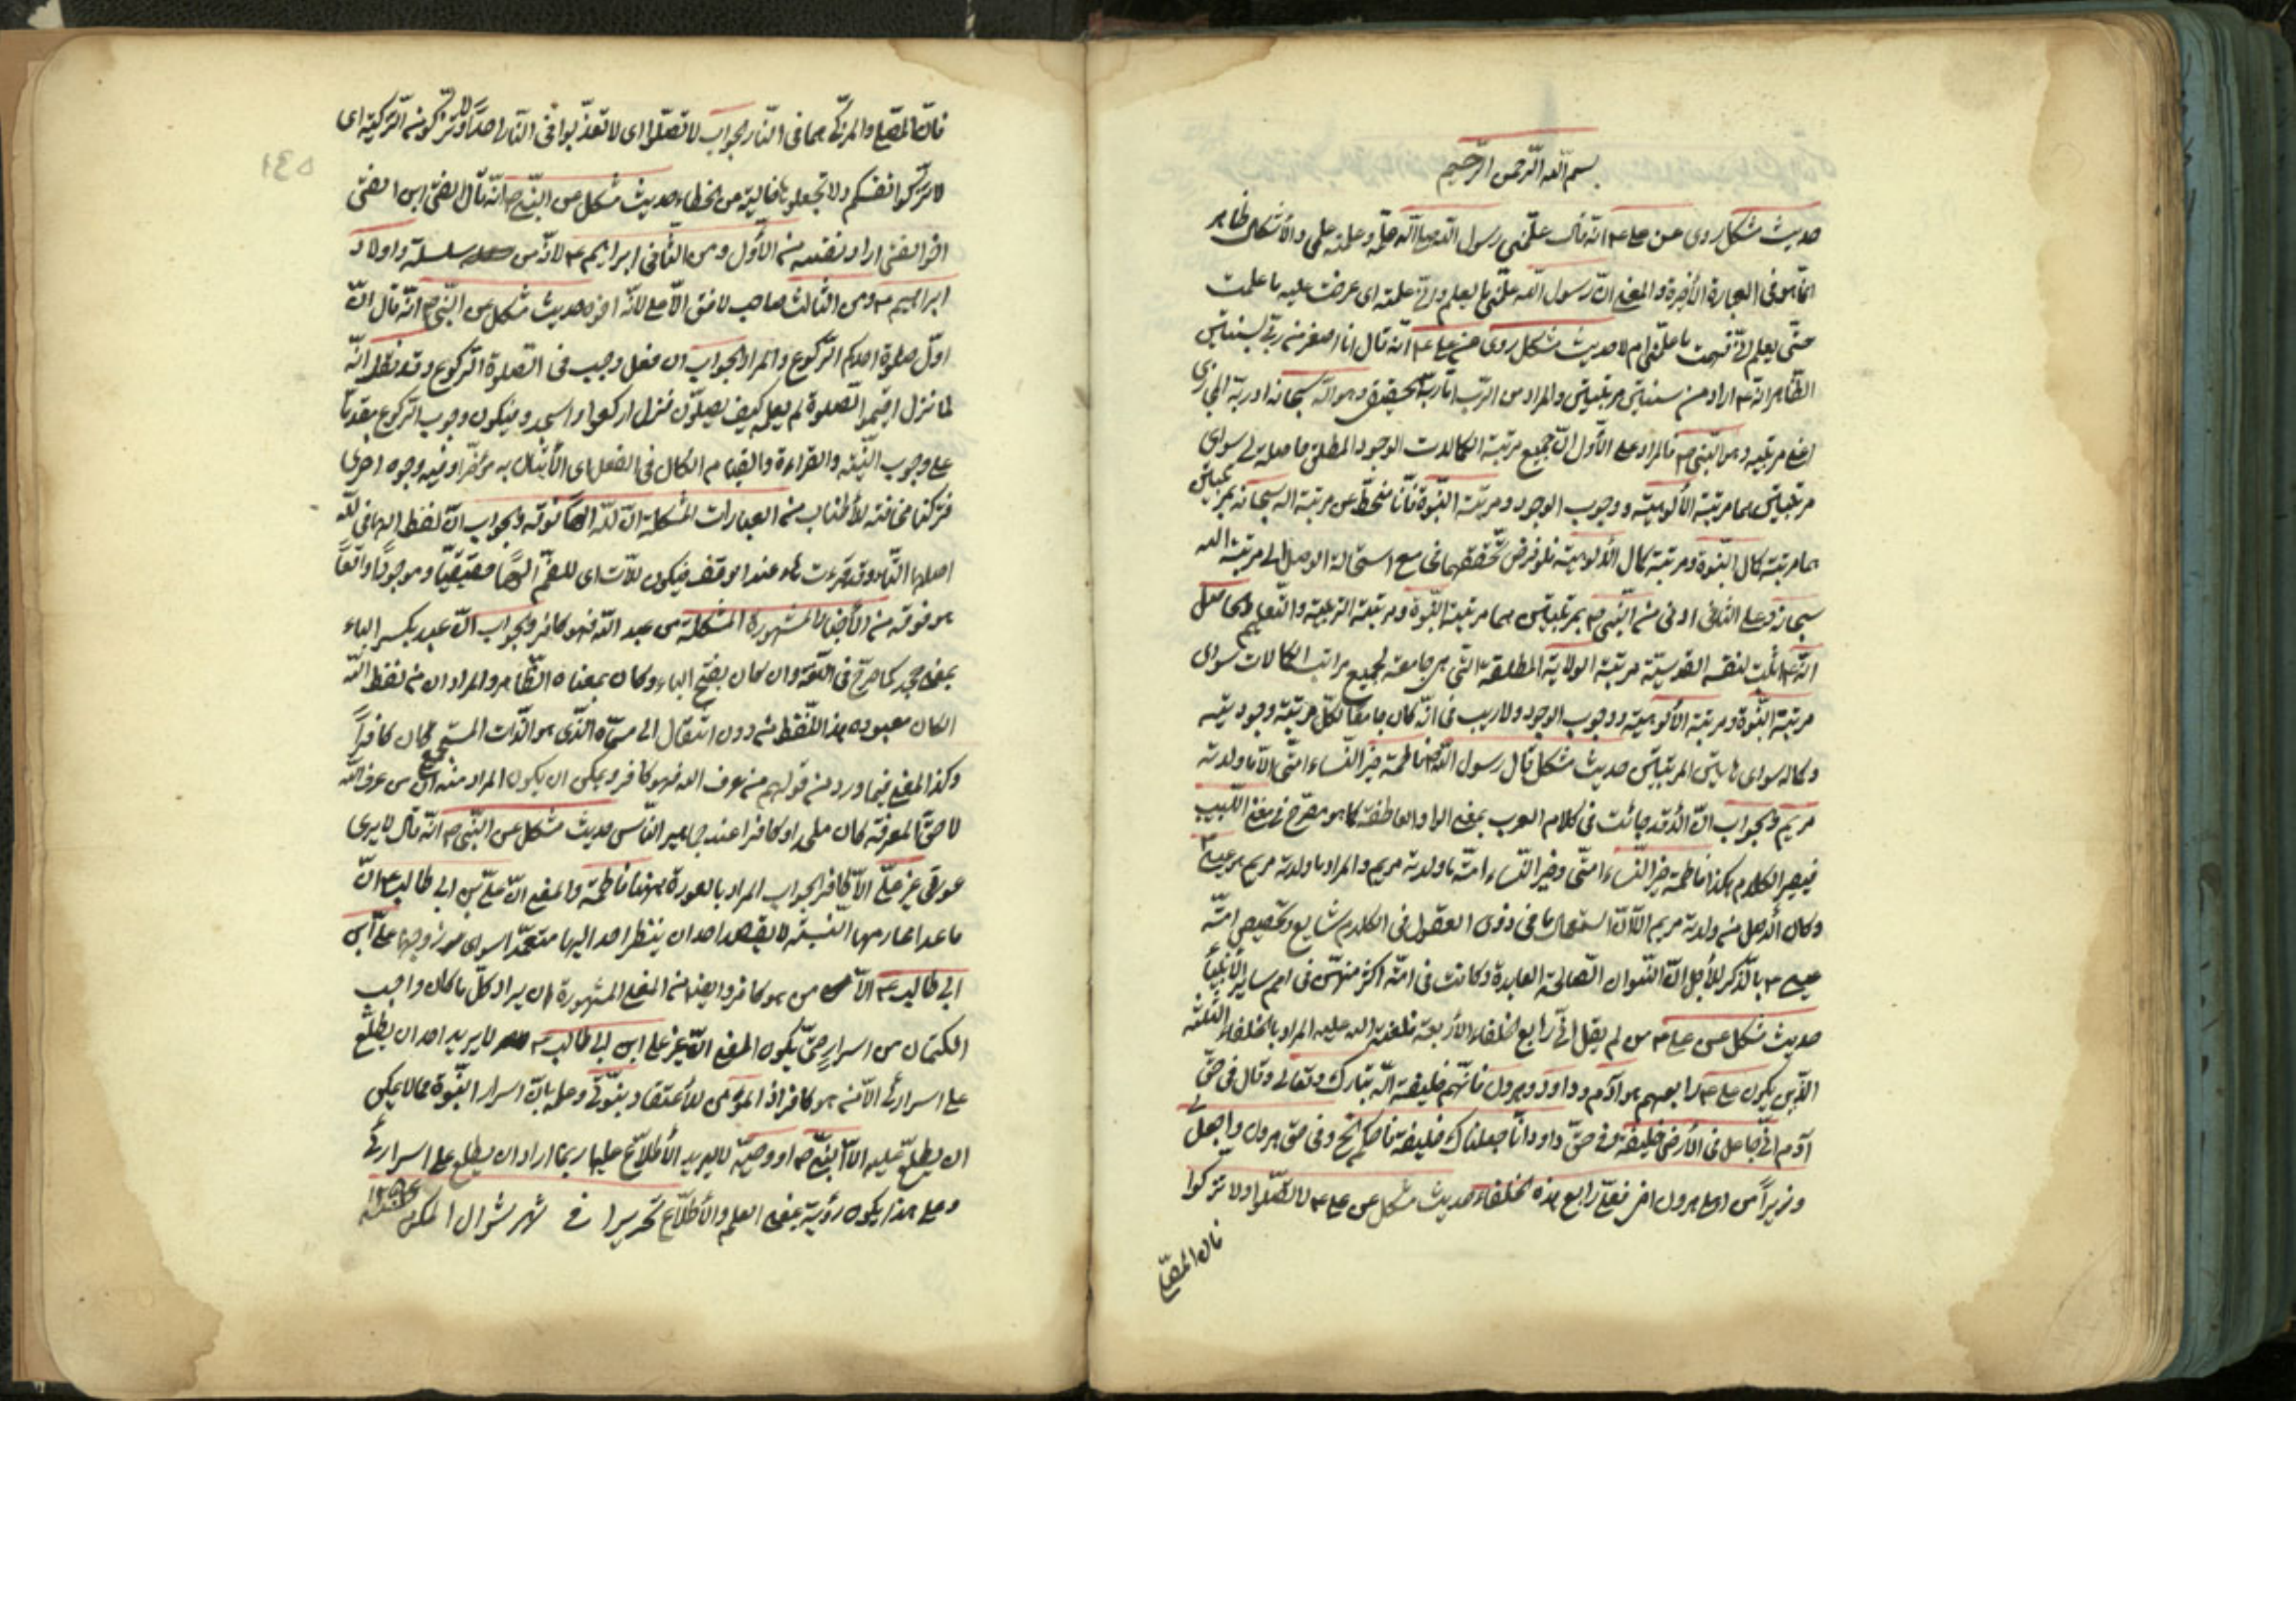 بسم الله الرحمن الرحيم
حديث مشكل روى عن على ع انه قال علّمنى رسول الله ص علمه وعلمته علمى والأشكال ظاهر
انما هو فى العبارة الأخيرة والمعنى انّ رسول الله علّمنى ما يعلم وانى علمته اى عرضت عليه ما علمت
حتّى يعلم انّى فهمت ما علّمنى ام لا حديث مشكل روى عن على ع انّه قال انا اصغر من ربّى بسنتين
الظاهر انه ع اراد من سنتين مرتبتين والمراد من الرب امّا ربه الحقيقى وهو الله سبحانه او ربّه المجازى
اعنى مربّيه وهو النبى ص فالمراد على الأول انّ جميع مرتبة الكمالات الوجود المطلق حاصلة لى سوى
مرتبتين هما مرتبة الألوهية ووجوب الوجود ومرتبة النبوة فأنا منحطّ عن مرتبة اله سبحانه بمرتبتين
هما مرتبة كمال النبوة ومرتبة كمال الألوهية فلو فرض تحققهما مع استحالة الوصول الى مرتبة الله
سبحانه وعلى الثانى ادنى من النبى ص بمرتبتين هما مرتبة النبوة ومرتبة التربية والتعليم والحاصل
انه ع اثبت لنفسه القدسيّة مرتبة الولاية المطلقة التى هى جامعة لجميع مراتب الكمالات سوى
مرتبة النبوة ومرتبة الألوهية ووجوب الوجود ولا ريب فى انّه كان جامعا لكلّ مرتبة وجوديّة
وكماله سوى هاتين المرتبتين حديث مشكل قال رسول الله ص فاطمة خير النساء امّتى الّا ما ولدته
مريم والجواب انّ الّا قد جائت فى كلام العرب بمعنى الواو العاطفة كما هو مصرّح فى مغنى اللبيب
فيصير الكلام هكذا فاطمة خير النساء امتى وخير النساء امّة ما ولدته مريم والمراد بما ولدته مريم هو عيسى ع
وكان الأصل من ولدته مريم الّا انّ استعمال ما فى ذوى العقول فى الكلام شايع وتخصيص امّة
عيسى ع بالذّكر لأجل انّ النسوان الصالحة العابدة وكانت فى امّته اكثر منهنّ فى امم ساير الأنبياء
حديث مشكل عن على ع من لم يقل انّى رابع الخلفاء الأربعة فلعنة الله عليه المراد بالخلفاء الثلثة
الذين يكون على ع رابعهم هو آدم وداود وهرون فانّهم خليفة الله تبارك وتعالى وقال فى حقّ
آدم انّى جاعل فى الأرض خليفة وفى حقّ داود انّا جعلناك خليفة فاحكم الخ وفى حق هرون واجعل لى
وزيراً من اهلى هرون اخى فعلىّ رابع هذه الخلفاء حديث مشكل عن على ع لا تصلّوا ولا تزكوا
فانّ المصلّى
فانّ المصلّى والمزكّى هما فى النار الجواب لا تصلّوا اى لا تعذّبوا فى النار احدا ولا تزكوا من التزكية اى
لا تزكّوا انفسكم ولا تجعلوها خالية من الخطاء حديث مشكل عن النبى ص انّه قال انا الفتى ابن الفتى
اخو الفتى اراد نفسه من الأول ومن الثانى ابراهيم ع لانّه من سلسلة واولاد
ابراهيم ع ومن الثالث صاحب لا فتى الّا على لانّه اخوه حديث مشكل عن النبى ص انّه قال انّ
اوّل صلوة احدكم الركوع والمراد الجواب ان فعل وجب فى الصلوة الركوع وقد نقل انّه
لما نزل اقيموا الصلوة لم يعلم كيف يصلون فنزل اركعوا واسجدوا فيكون وجوب الركوع مقدما
على وجوب النيّة والقراءة والقيام
فتركنا مخافة للأطناب من العبارات المشكلة انّ للّه الهاً فوقه والجواب انّ لفظ الهاء فى للّه
اصلها التاء وقد قرءت هاء عند الوقف فيكون للّات اى للصنم الهاً حقيقيّا وموجوداً واقعاً
هو فوقه من الأخبار المشهورة المشكلة من عبد الله فهو كافر والجواب انّ عبد بكسر الباء
بمعنى جحد كما صرّح فى اللغة وان كان بفتح الباء وكان بمعناه الظاهر والمراد ان من لفظ الله
ان كان معبوده هذا اللفظ من دون انتقال الى مسمّاه الذى هو الذات المستجمع لكان كافراً
وكذا المعنى فيما ورد من قولهم من عرف الله فهو كافر ويمكن ان يكون المراد منه انّ من عرف الله
لا حقّ المعرفة كان ملحدا وكافرا عند جماهير الناس حديث مشكل عن النبى ص انّه قال لا يرى
عورتى غير علىّ الّا كافر الجواب المراد بالعورة ههنا فاطمة والمعنى انّ علىّ بن ابى طالب ع انّ
ما عدا محارمها النسبيّة لا يقصد احد ان ينظر احد اليها متعمّدا سوى زوجها على بن
ابى طالب ع الّا من هو كافر وايضا من المعنى المشهورة ان يراد كلّ ما كان واجب
الكتمان من اسرار حتّى يكون المعنى انّ غير على ابن ابى طالب ع لا يريد احد ان يطلع
على اسرارى الّا من هو كافر اذ المؤمن للأعتقاد بنبوّتى وعلمه بانّ اسرار النبوة مما لا يمكن
ان يطلع عليه الّا النبى ص او وصيّه لا يريد الأطلاع عليها ربما اراد ان يطلع على اسرارى
وعلى هذا يكون رؤية بمعنى العلم والأطلاع تحريرا فى شهر شوال المكرم